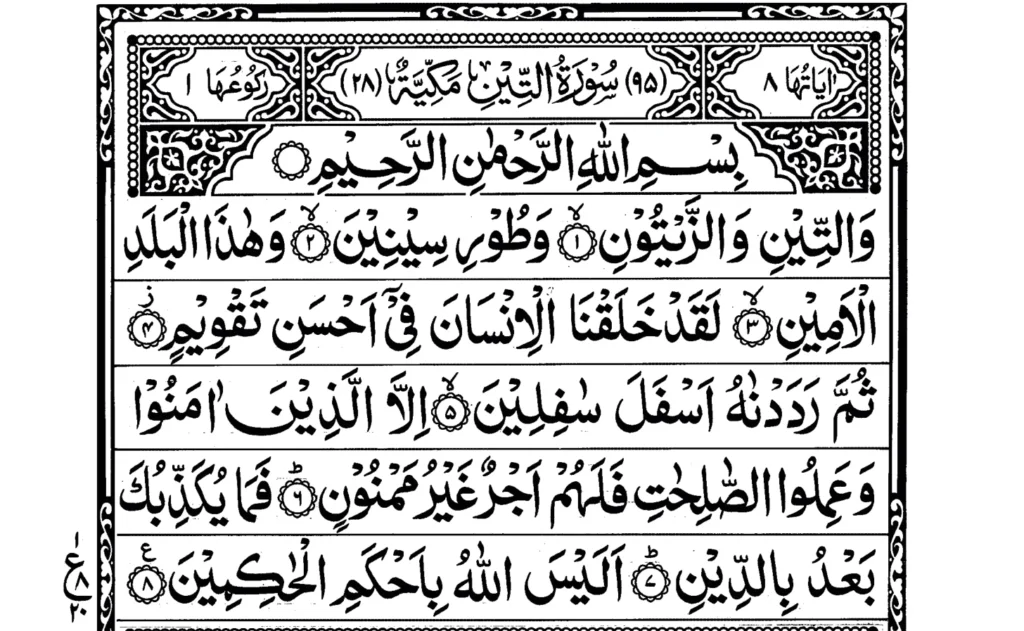 اٰیَاتُهَا ۸ (۹۵) سُوْرَةُ التِّيْنِ مَكِّيَّةٌ (۲۸) رُكُوْعُهَا ۱
بِسْمِ اللّٰهِ الرَّحْمٰنِ الرَّحِيْمِ
وَالتِّيْنِ وَالزَّيْتُوْنِ ۙ۱ وَطُوْرِ سِيْنِيْنَ ۙ۲ وَهٰذَا الْبَلَدِ
الْاَمِيْنِ ۙ۳ لَقَدْ خَلَقْنَا الْاِنْسَانَ فِيْۤ اَحْسَنِ تَقْوِيْمٍ ز۴
ثُمَّ رَدَدْنٰهُ اَسْفَلَ سٰفِلِيْنَ ۙ۵ اِلَّا الَّذِيْنَ اٰمَنُوْا
وَعَمِلُوا الصّٰلِحٰتِ فَلَهُمْ اَجْرٌ غَيْرُ مَمْنُوْنٍ ؕ۶ فَمَا يُكَذِّبُكَ
بَعْدُ بِالدِّيْنِ ؕ۷ اَلَيْسَ اللّٰهُ بِاَحْكَمِ الْحٰكِمِيْنَ ع۸
۱
ع
۸
۲۰